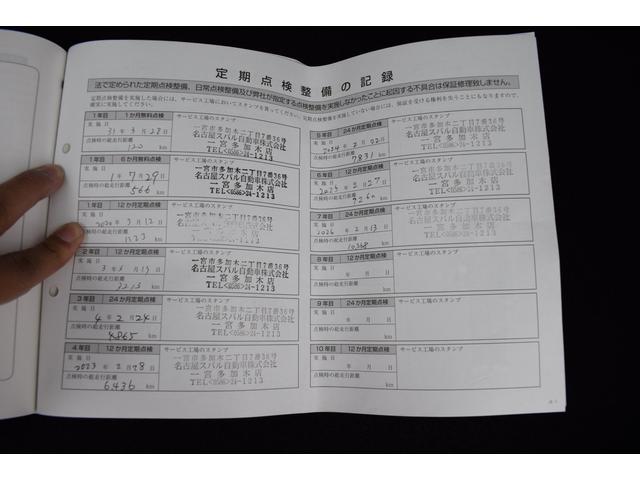 定期点検整備の記録
法で定められた定期点検整備、日常点検整備及び弊社が指定する点検整備を実施しなかったことに起因する不具合は保証修理致しません。
定期点検整備を実施した場合には、サービス工場においてスタンプを貰ってください。定期点検整備を実施していない場合には、保証を受ける権利を失うことにもなりますので、
確実に実施してください。
1年目 1か月無料点検 サービス工場のスタンプ
実施日 31年3月28日
点検時の総走行距離
120 km
一宮市多加木二丁目7番36号
名古屋スバル自動車株式会社
一宮多加木店
TEL<0586>24-1213
1年目 6か月無料点検 サービス工場のスタンプ
実施日 1年7月29日
点検時の総走行距離
566 km
一宮市多加木二丁目7番36号
名古屋スバル自動車株式会社
一宮多加木店
TEL<0586>24-1213
1年目 12か月定期点検 サービス工場のスタンプ
実施日 2020年3月12日
点検時の総走行距離
1123 km
一宮市多加木二丁目7番36号
名古屋スバル自動車株式会社
一宮多加木店
TEL<0586>24-1213
2年目 12か月定期点検 サービス工場のスタンプ
実施日
点検時の総走行距離
3213 km
一宮市多加木二丁目7番36号
名古屋スバル自動車株式会社
一宮多加木店
TEL<0586>24-1213
3年目 24か月定期点検 サービス工場のスタンプ
実施日 4年2月24日
点検時の総走行距離
4865 km
一宮市多加木二丁目7番36号
名古屋スバル自動車株式会社
一宮多加木店
TEL<0586>24-1213
4年目 12か月定期点検 サービス工場のスタンプ
実施日 2023年2月28日
点検時の総走行距離
6436 km
一宮市多加木二丁目7番36号
名古屋スバル自動車株式会社
一宮多加木店
TEL<0586>24-1213
5年目 24か月定期点検 サービス工場のスタンプ
実施日 2024年2月22日
点検時の総走行距離
7831 km
一宮市多加木二丁目7番36号
名古屋スバル自動車株式会社
一宮多加木店
TEL<0586>24-1213
6年目 12か月定期点検 サービス工場のスタンプ
実施日 2025年2月27日
点検時の総走行距離
km
一宮市多加木二丁目7番36号
名古屋スバル自動車株式会社
一宮多加木店
TEL<0586>24-1213
7年目 24か月定期点検 サービス工場のスタンプ
実施日 2026年2月13日
点検時の総走行距離
10368 km
一宮市多加木二丁目7番36号
名古屋スバル自動車株式会社
一宮多加木店
TEL<0586>24-1213
8年目 12か月定期点検 サービス工場のスタンプ
実施日 年月日
点検時の総走行距離
km
9年目 24か月定期点検 サービス工場のスタンプ
実施日 年月日
点検時の総走行距離
km
10年目 12か月定期点検 サービス工場のスタンプ
実施日 年月日
点検時の総走行距離
km